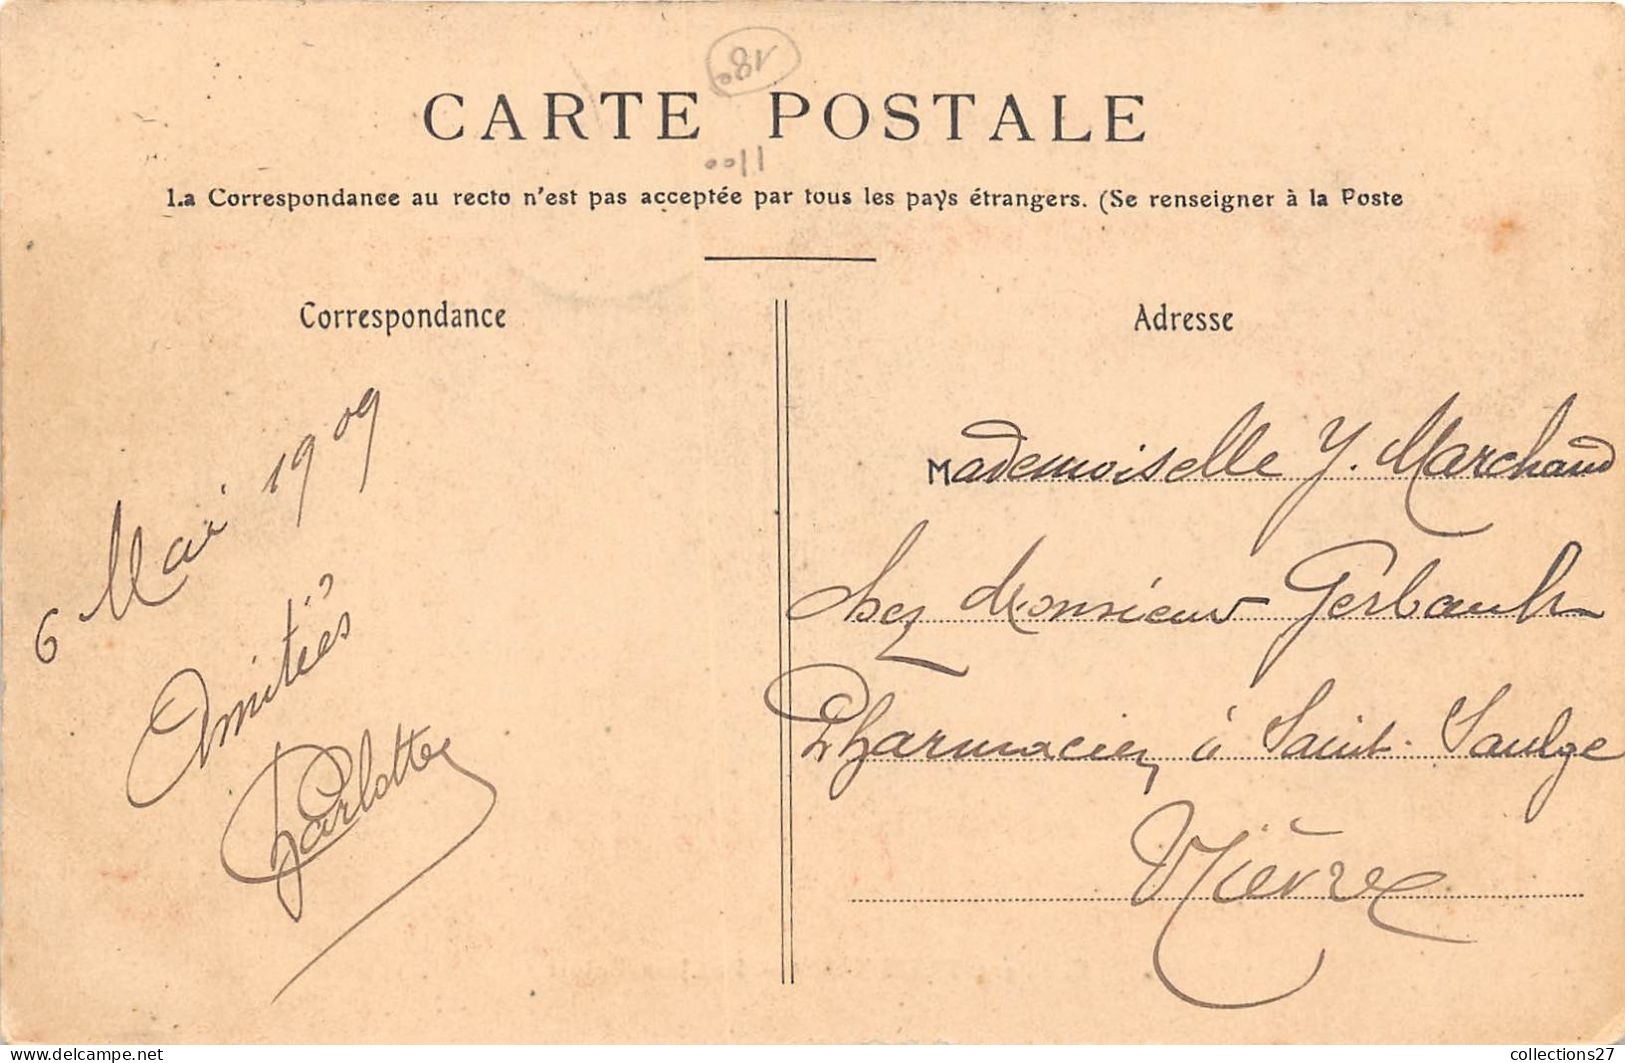 CARTE POSTALE
La Correspondance au recto n'est pas acceptée par tous les pays étrangers. (Se renseigner à la Poste
Correspondance
6 Mai 1909
Amitiés
Charlotte
Adresse
Mademoiselle Y. Marchand
chez Monsieur Gerbault
Pharmacien à Saint-Saulge
Nièvre
collections27